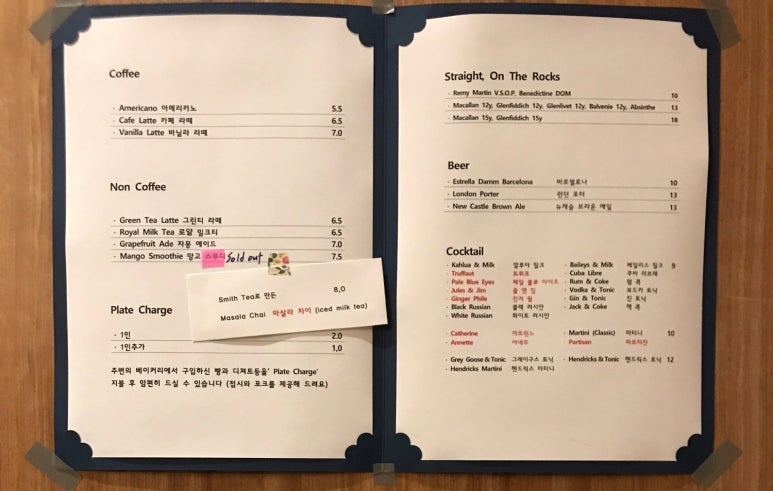 Coffee
· Americano 아메리카노 5.5
· Cafe Latte 카페 라떼 6.5
· Vanilla Latte 바닐라 라떼 7.0
Non Coffee
· Green Tea Latte 그린티 라떼 6.5
· Royal Milk Tea 로얄 밀크티 6.5
· Grapefruit Ade 자몽 에이드 7.0
· Mango Smoothie 망고 스무디 Sold out 7.5
Smith Tea로 만든 8,0
Masala Chai 마살라 차이 (iced milk tea)
Plate Charge
· 1인 2.0
· 1인추가 1,0
주변의 베이커리에서 구입하신 빵과 디저트등을' Plate Charge'
지불 후 맘편히 드실 수 있습니다 (접시와 포크를 제공해 드려요)
Straight, On The Rocks
· Remy Martin V.S.O.P. Benedictine DOM 10
· Macallan 12y, Glenfiddich 12y, Glenlivet 12y, Balvenie 12y, Absinthe 13
· Macallan 15y, Glenfiddich 15y 18
Beer
· Estrella Damm Barcelona 바르셀로나 10
· London Porter 런던 포터 13
· New Castle Brown Ale 뉴캐슬 브라운 에일 13
Cocktail
· Kahlua & Milk 깔루아 밀크 · Baileys & Milk 베일리스 밀크 9
· Truffaut 트뤼포 · Cuba Libre 쿠바 리브레
· Pale Blue Eyes 페일 블루 아이즈 · Rum & Coke 럼 콕
· Jules & Jim 줄 앤 짐 · Vodka & Tonic 보드카 토닉
· Ginger Phile 진저 필 · Gin & Tonic 진 토닉
· Black Russian 블랙 러시안 · Jack & Coke 잭 콕
· White Russian 화이트 러시안
· Catherine 카트린느 · Martini (Classic) 마티니 10
· Annette 아네트 · Partisan 파르티잔
· Grey Goose & Tonic 그레이구스 토닉 · Hendricks & Tonic 핸드릭스 토닉 12
· Hendricks Martini 핸드릭스 마티니